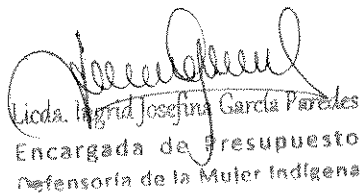 Licda. Ingrid Josefina García Paredes
Encargada de Presupuesto
Defensoría de la Mujer Indígena